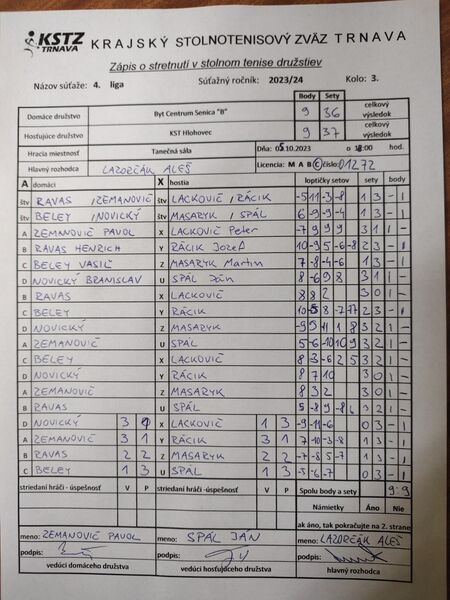 KSTZ
TRNAVA
KRAJSKÝ STOLNOTENISOVÝ ZVÄZ TRNAVA
Zápis o stretnutí v stolnom tenise družstiev
Názov súťaže: 4. liga Súťažný ročník: 2023/24 Kolo: 3.
Body Sety
Domáce družstvo Byt Centrum Senica "B" 9 36 celkový výsledok
Hosťujúce družstvo KST Hlohovec 9 37 celkový výsledok
Hracia miestnosť Tanečná sála Dňa: 10.2023 o hod.
Hlavný rozhodca LAZORČÁK ALEŠ Licencia: M A B C číslo: 01272
A domáci X hostia loptičky setov sety body
štv RAVAS, ZEMANOVIČ štv LACKOVIČ, RÁCIK -5 11 -3 -8 1 3 - 1
štv BELEY, NOVICKÝ štv MASARYK, SPÁL 6 -9 -9 -4 1 3 - 1
A ZEMANOVIČ PAVOL X LACKOVIČ Peter -7 9 9 9 3 1 1 -
B RAVAS HENRICH Y RÁCIK Jozef 10 -9 5 -6 -8 2 3 - 1
C BELEY VASIL Z MASARYK Martin 7 -8 -4 -6 1 3 - 1
D NOVICKÝ BRANISLAV U SPÁL Ján 8 -6 9 8 3 1 1 -
B RAVAS X LACKOVIČ 8 8 2 3 0 1 -
C BELEY Y RÁCIK 2 3 - 1
D NOVICKÝ Z MASARYK 3 2 1 -
A ZEMANOVIČ U SPÁL 5 -6 -10 10 9 3 2 1 -
C BELEY X LACKOVIČ 8 3 -6 2 5 3 2 1 -
D NOVICKÝ Y RÁCIK 8 7 10 3 0 1 -
A ZEMANOVIČ Z MASARYK 8 3 2 3 0 1 -
B RAVAS U SPÁL 5 -8 9 -8 3 2 1 -
D NOVICKÝ 3 X LACKOVIČ 1 3 -9 -11 -6 0 3 - 1
A ZEMANOVIČ 3 1 Y RÁCIK 3 1 7 -10 -3 -8 1 3 - 1
B RAVAS 2 2 Z MASARYK 2 2 -7 -8 5 -7 1 3 - 1
C BELEY 1 3 U SPÁL 1 3 -5 -6 -7 0 3 - 1
striedaní hráči - úspešnosť V P striedaní hráči - úspešnosť V P Spolu body a sety 9-9
Námietky Áno Nie
ak áno, tak pokračujte na 2. strane
meno: ZEMANOVIČ PAVOL meno: SPÁL JÁN meno: LAZORČÁK ALEŠ
podpis: podpis: podpis:
vedúci domáceho družstva vedúci hosťujúceho družstva hlavný rozhodca